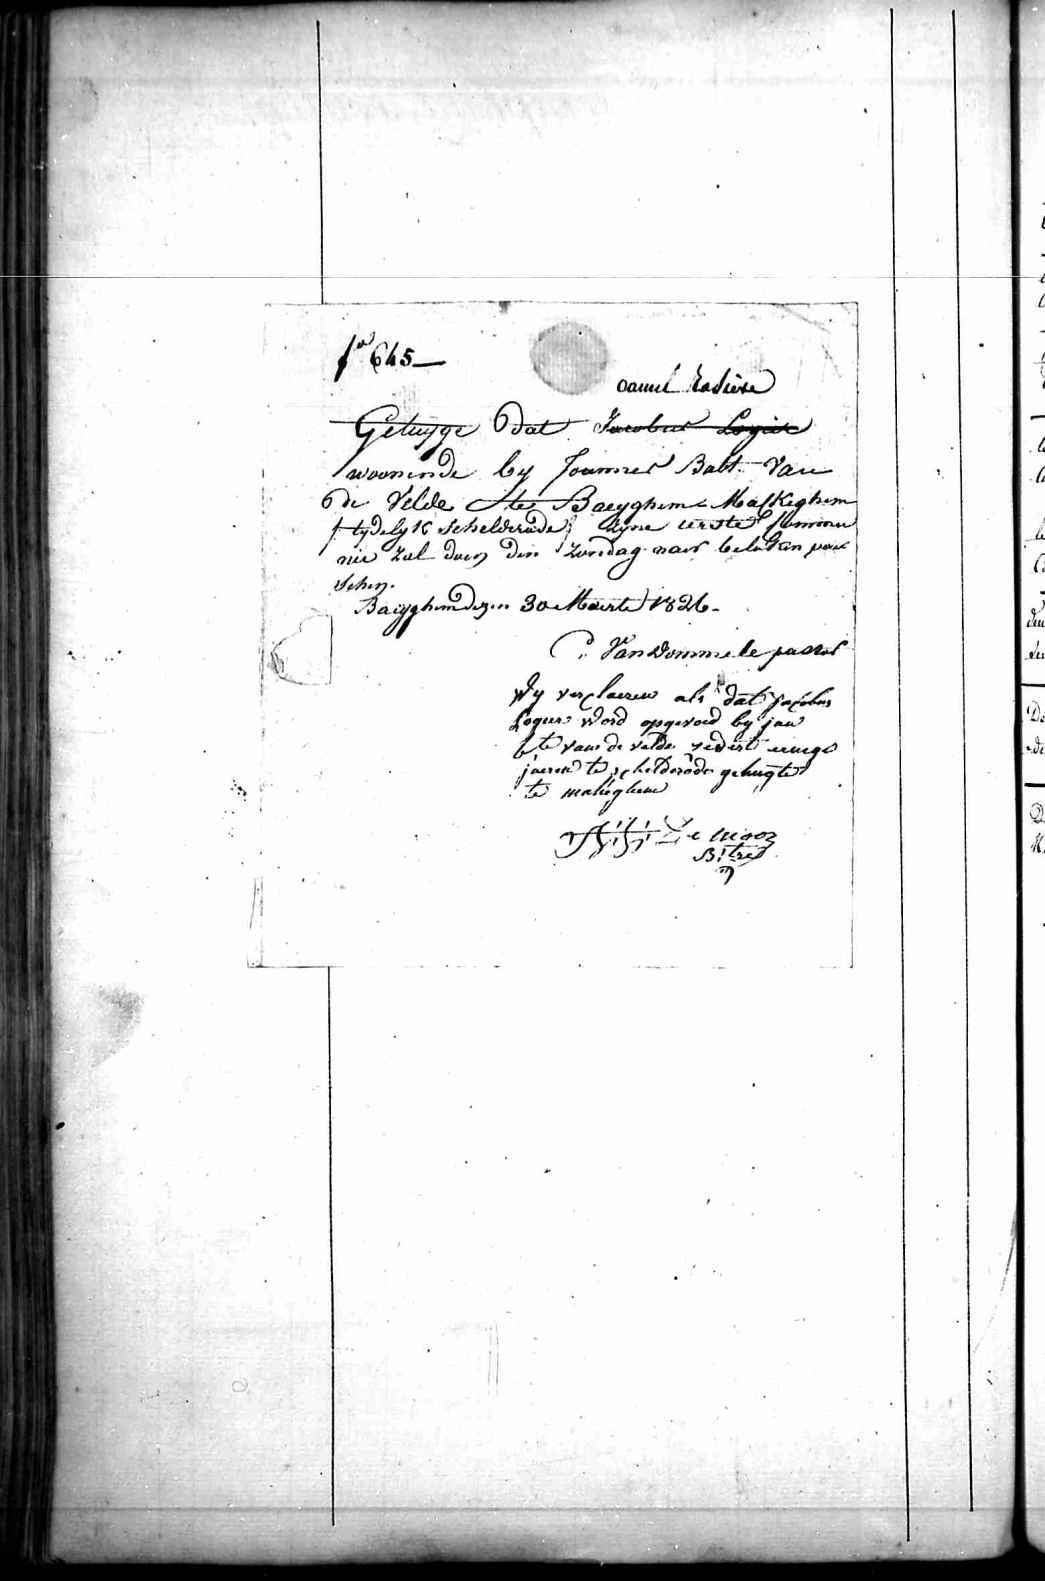 fo 645
Getuyge dat Jacobus Logier
woonende by Joannes Babt. Van
de Velde te Baeyghem Malkeghem
tydelyk Schelderode zyne eerste Commu
nie zal doen den zondag naer beloken pae
schen.
Baeyghem dezen 30 Maerte 1826.
P. Van Dommele pastor
Wy verclaeren als dat jacobus
Logier word opgevoed by jan
bte van de velde sedert eenige
jaeren te schelderode gehugte
te